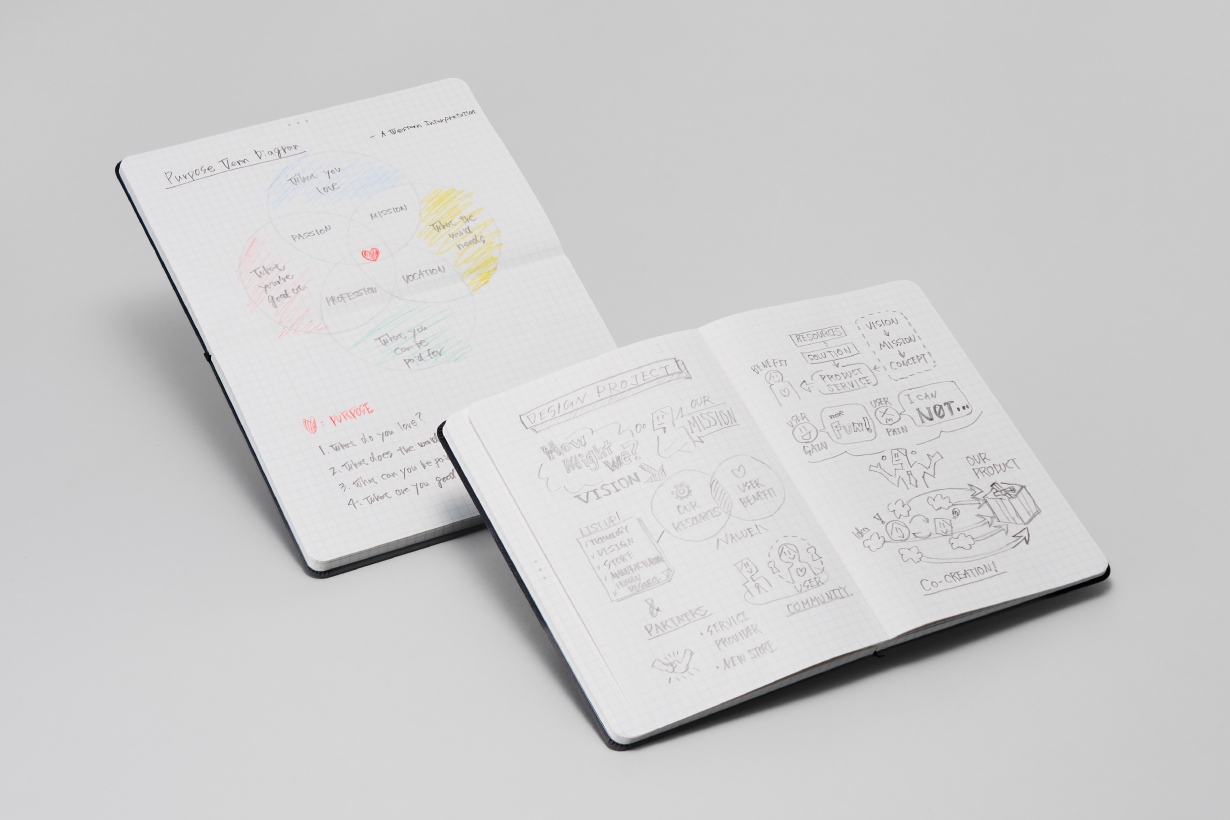 Purpose Venn Diagram
- A Western Interpretation
What you
love
PASSION
MISSION
What the
world
needs
What
you're
good at
PROFESSION
VOCATION
What you
can be
paid for
= PURPOSE
1. What do you love?
2. What does the world
3. What can you be pa
4. What are you good
DESIGN PROJECT
How
Might
We?
VISION
OUR
MISSION
OUR
RESOURCES
USER
BENEFIT
VALUE!
LIST UP!
✓ DESIGN
✓ STORE
&
PARTNERS
• SERVICE
PROVIDER
• NEW STORE
USER
COMMUNITY.
RESOURCES
SOLUTION
PRODUCT
SERVICE
BENEFIT
VISION
MISSION
CONCEPT
USER
GAIN
more
FUN!
USER
PAIN
I CAN
NOT...
OUR
PRODUCT
Idea
CO-CREATION!